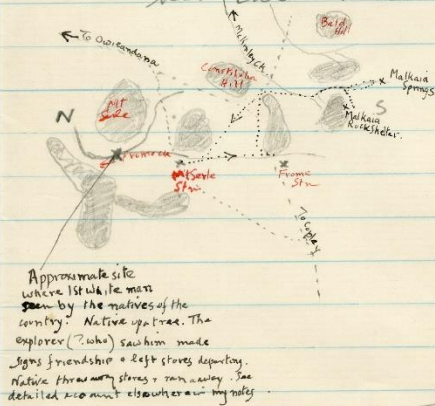 Bald
Hill
To Owieandana
McKinlock
Constitution
Hill
Malkaia
Springs
Mt
Serle
N
S
Malkaia
Rockshelter
Mt Serle
Stn
Frome
Stn
To Copley
Approximate site
where 1st white man
seen by the natives of the
country. Native up a tree. The
explorer (?.who) saw him made
signs friendship & left stores departing.
Native threw away stores & ran away. See
detailed account elsewhere in my notes